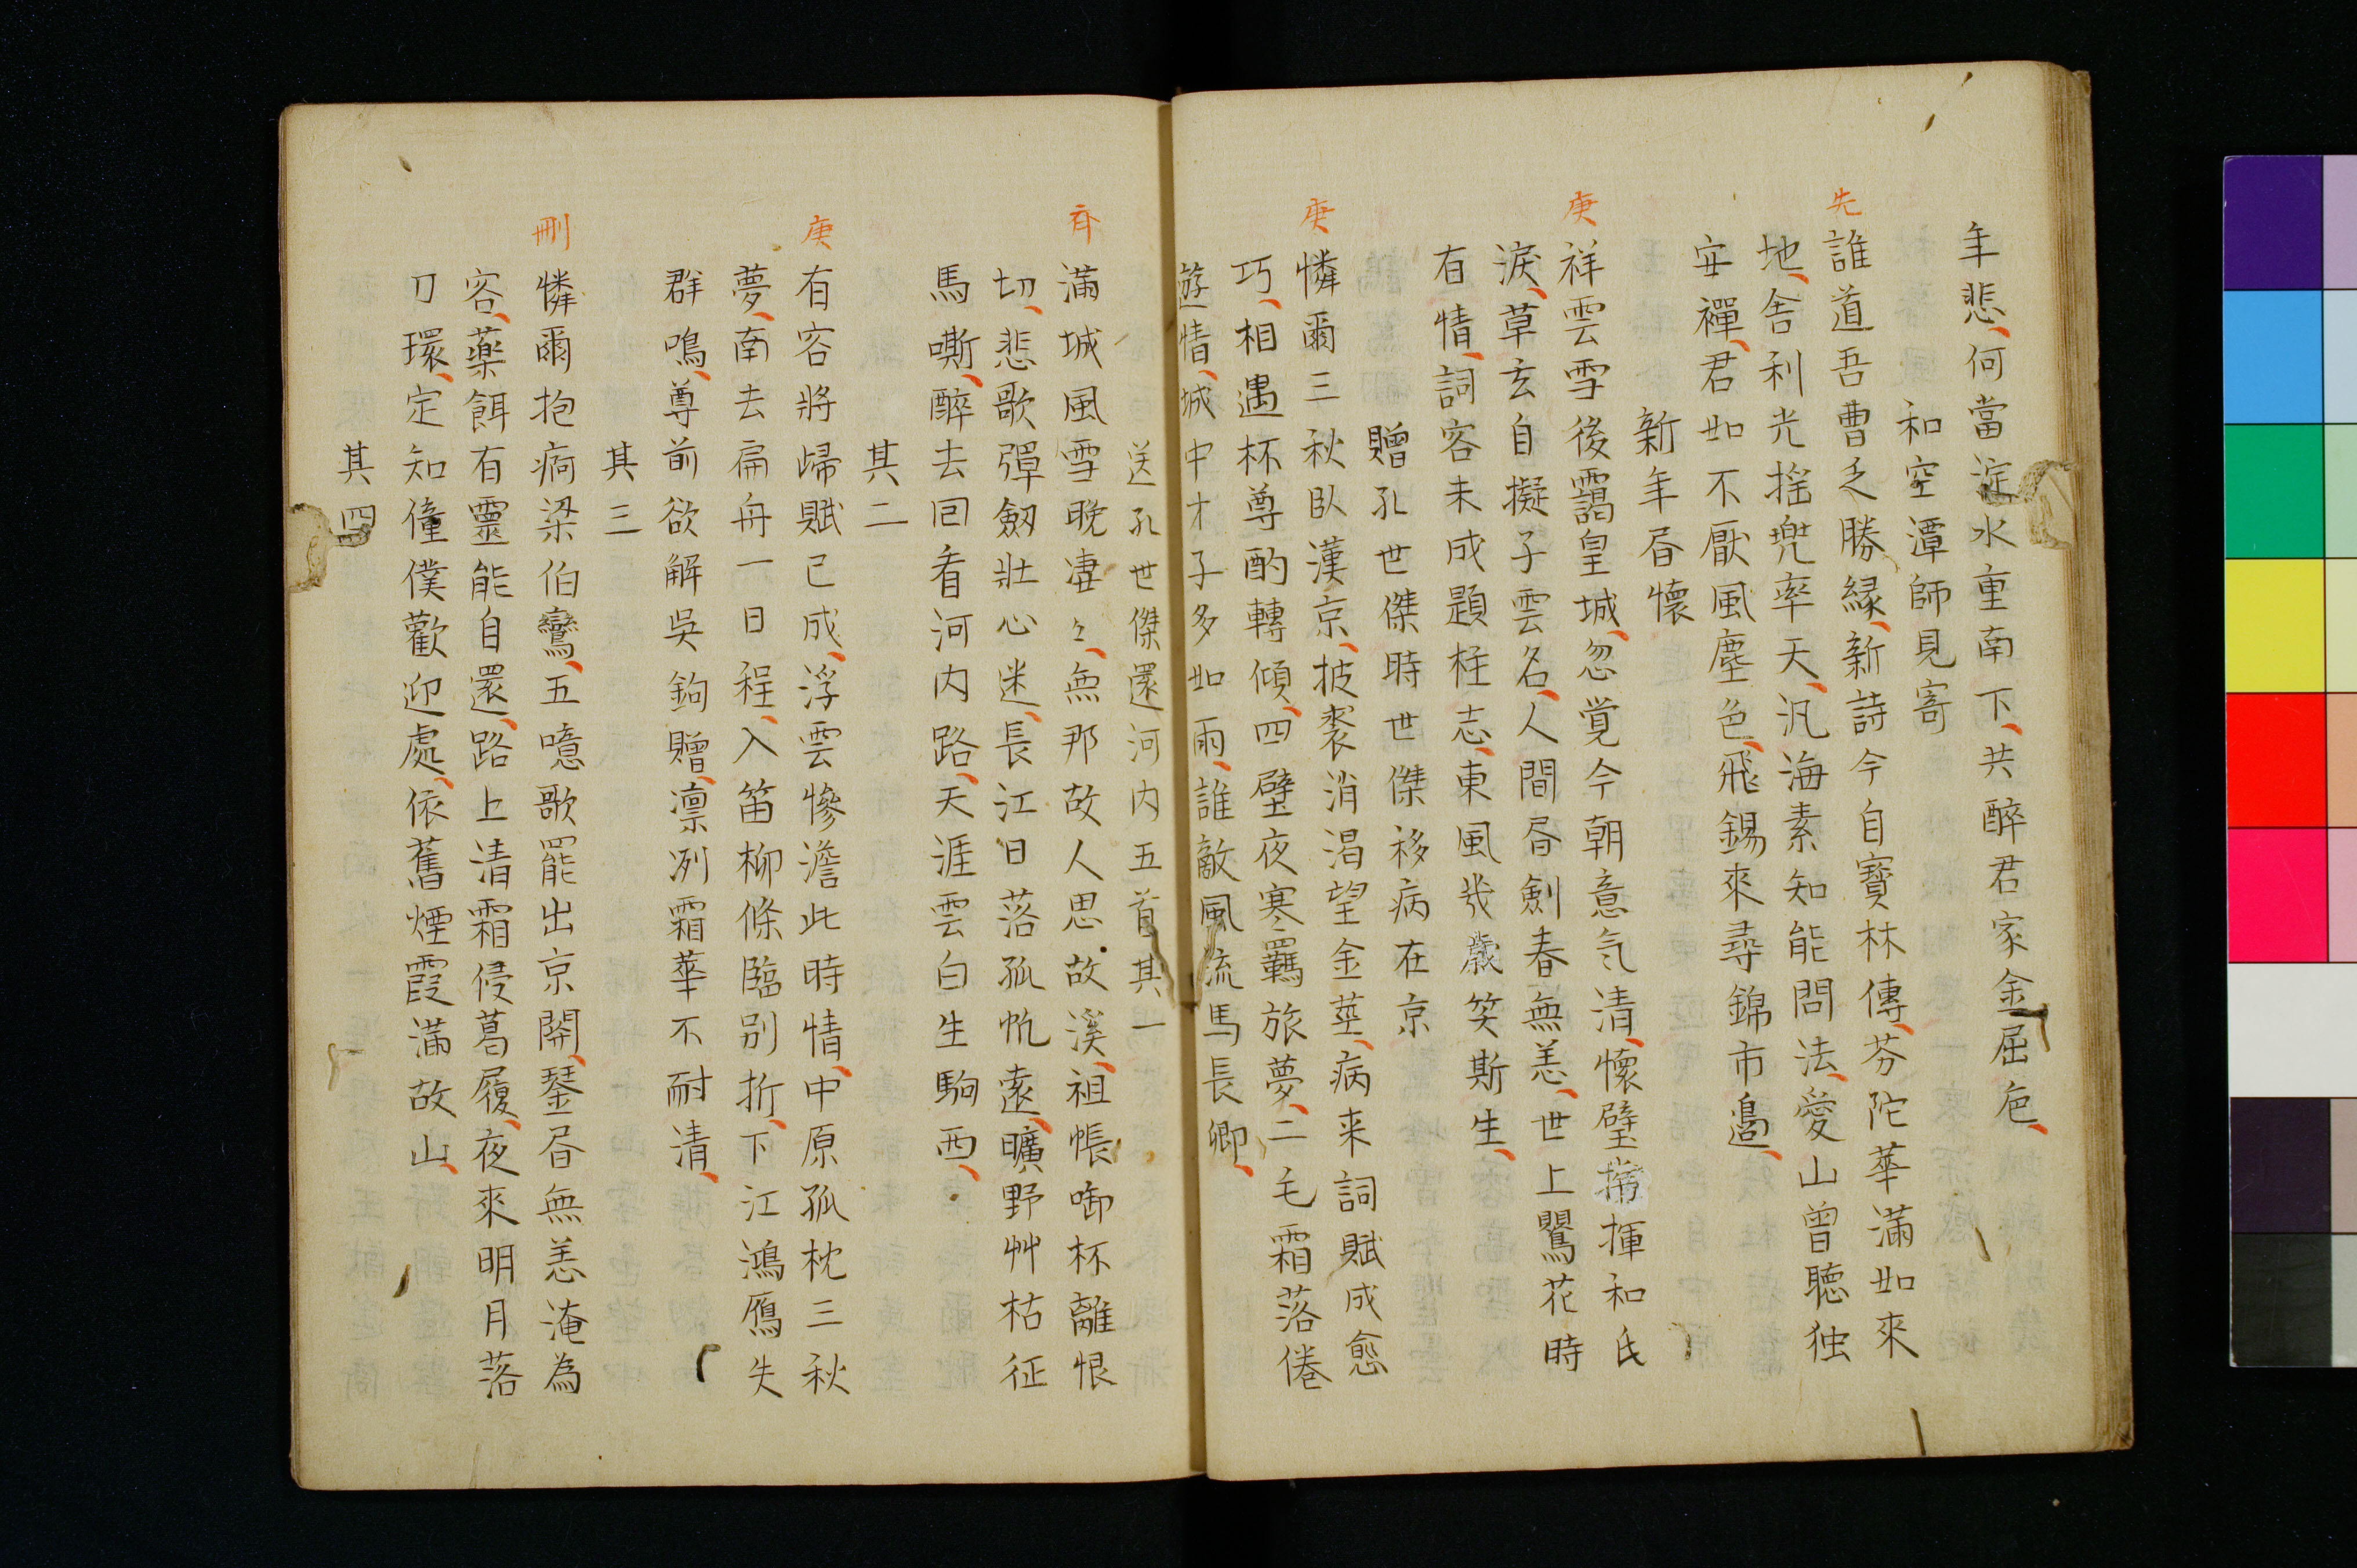 年悲、何當淀水重南下、共醉君家金屈卮、
和空潭師見寄
先
誰道吾曹乏勝縁、新詩今自寶林傳、芬陀華滿如來
地、舎利光揺兜率天、汎海素知能問法、愛山曾聴独
安禪、君如不厭風塵色、飛錫來尋錦市邊、
新年昏懷
庚
祥雲雪後靄皇城、忽覚今朝意気清、懷璧揮和氏
淚、草玄自擬子雲名、人間昏劍春無恙、世上鸎花時
有情、詞客未成題柱志、東風幾歳笑斯生、
贈孔世傑時世傑移病在京
庚
憐爾三秋臥漢京、披裘消渇望金莖、病来詞賦成愈
巧、相遇杯尊酌轉傾、四壁夜寒羈旅夢、二毛霜落倦
遊情、城中才子多如雨、誰敵風流馬長卿、
送孔世傑還河内五首其一
斉
滿城風雪晩凄〻、無那故人思故溪、祖帳啣杯離恨
切、悲歌彈劔壯心迷、長江日落孤帆遠、曠野艸枯征
馬嘶、醉去回看河内路、天涯雲白生駒西、
其二
庚
有容將歸賦已成、浮雲慘澹此時情、中原孤枕三秋
夢、南去扁舟一日程、入笛柳條臨別折、下江鴻鴈失
群鳴、尊前欲解吳鉤贈、凛冽霜華不耐清、
其三
刪
憐爾抱痾梁伯鸞、五噫歌罷出京關、琹昏無恙淹為
客、藥餌有靈能自還、路上清霜侵葛履、夜來明月落
刀環、定知僮僕歡迎處、依舊煙霞滿故山、
其四